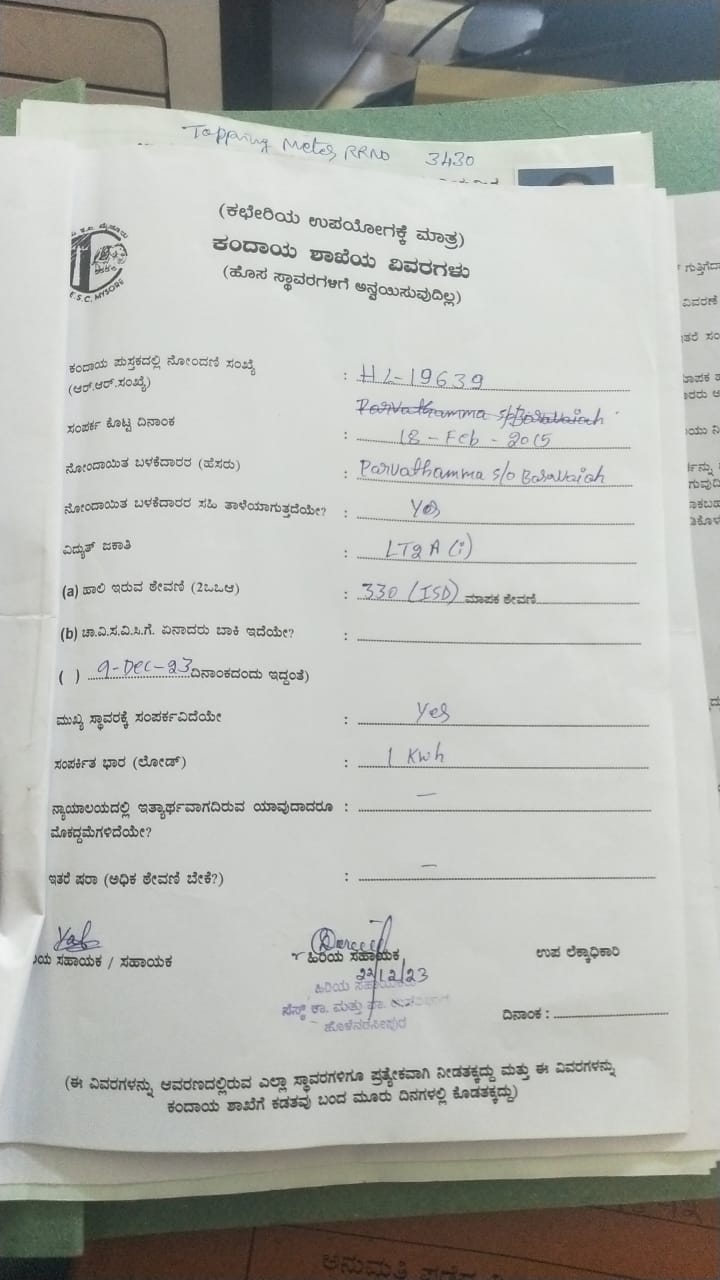 Tapping Meter RRNO 3430
(ಕಛೇರಿಯ ಉಪಯೋಗಕ್ಕೆ ಮಾತ್ರ)
ಕಂದಾಯ ಶಾಖೆಯ ವಿವರಗಳು
(ಹೊಸ ಸ್ಥಾವರಗಳಿಗೆ ಅನ್ವಯಿಸುವುದಿಲ್ಲ)
E.S.C. MYSORE
ಕಂದಾಯ ಪುಸ್ತಕದಲ್ಲಿ ನೋಂದಣಿ ಸಂಖ್ಯೆ : HL-19639
(ಆರ್.ಆರ್.ಸಂಖ್ಯೆ)
Parvathamma s/o Basavaiah
ಸಂಪರ್ಕ ಕೊಟ್ಟ ದಿನಾಂಕ : 18-Feb-2015
ನೋಂದಾಯಿತ ಬಳಕೆದಾರರ (ಹೆಸರು) : Parvathamma s/o Basavaiah
ನೋಂದಾಯಿತ ಬಳಕೆದಾರರ ಸಹಿ ತಾಳೆಯಾಗುತ್ತದೆಯೇ? : Yes
ವಿದ್ಯುತ್ ಜಕಾತಿ : LT2A(i)
(a) ಹಾಲಿ ಇರುವ ಠೇವಣಿ (2ಒಒಆ) : 330 (ISD) ಮಾಪಕ ಠೇವಣಿ
(b) ಚಾ.ವಿ.ಸ.ವಿ.ಸಿ.ಗೆ. ಏನಾದರು ಬಾಕಿ ಇದೆಯೇ? :
( ) 9-Dec-23 ದಿನಾಂಕದಂದು ಇದ್ದಂತೆ)
ಮುಖ್ಯ ಸ್ಥಾವರಕ್ಕೆ ಸಂಪರ್ಕವಿದೆಯೇ : Yes
ಸಂಪರ್ಕಿತ ಭಾರ (ಲೋಡ್) : 1 Kwh
ನ್ಯಾಯಾಲಯದಲ್ಲಿ ಇತ್ಯಾರ್ಥವಾಗದಿರುವ ಯಾವುದಾದರೂ : —
ಮೊಕದ್ದಮೆಗಳಿದೆಯೇ?
ಇತರೆ ಷರಾ (ಅಧಿಕ ಠೇವಣಿ ಬೇಕೆ?) : —
ಸಹಾಯಕ / ಸಹಾಯಕ
ಹಿರಿಯ ಸಹಾಯಕ
ಉಪ ಲೆಕ್ಕಾಧಿಕಾರಿ
22/12/23
ಹಿರಿಯ ಸಹಾಯಕರು
ಹೊಳೆನರಸೀಪುರ
ದಿನಾಂಕ :
(ಈ ವಿವರಗಳನ್ನು ಆವರಣದಲ್ಲಿರುವ ಎಲ್ಲಾ ಸ್ಥಾವರಗಳಿಗೂ ಪ್ರತ್ಯೇಕವಾಗಿ ನೀಡತಕ್ಕದ್ದು ಮತ್ತು ಈ ವಿವರಗಳನ್ನು
ಕಂದಾಯ ಶಾಖೆಗೆ ಕಡತವು ಬಂದ ಮೂರು ದಿನಗಳಲ್ಲಿ ಕೊಡತಕ್ಕದ್ದು)
ಅನುಮತಿ